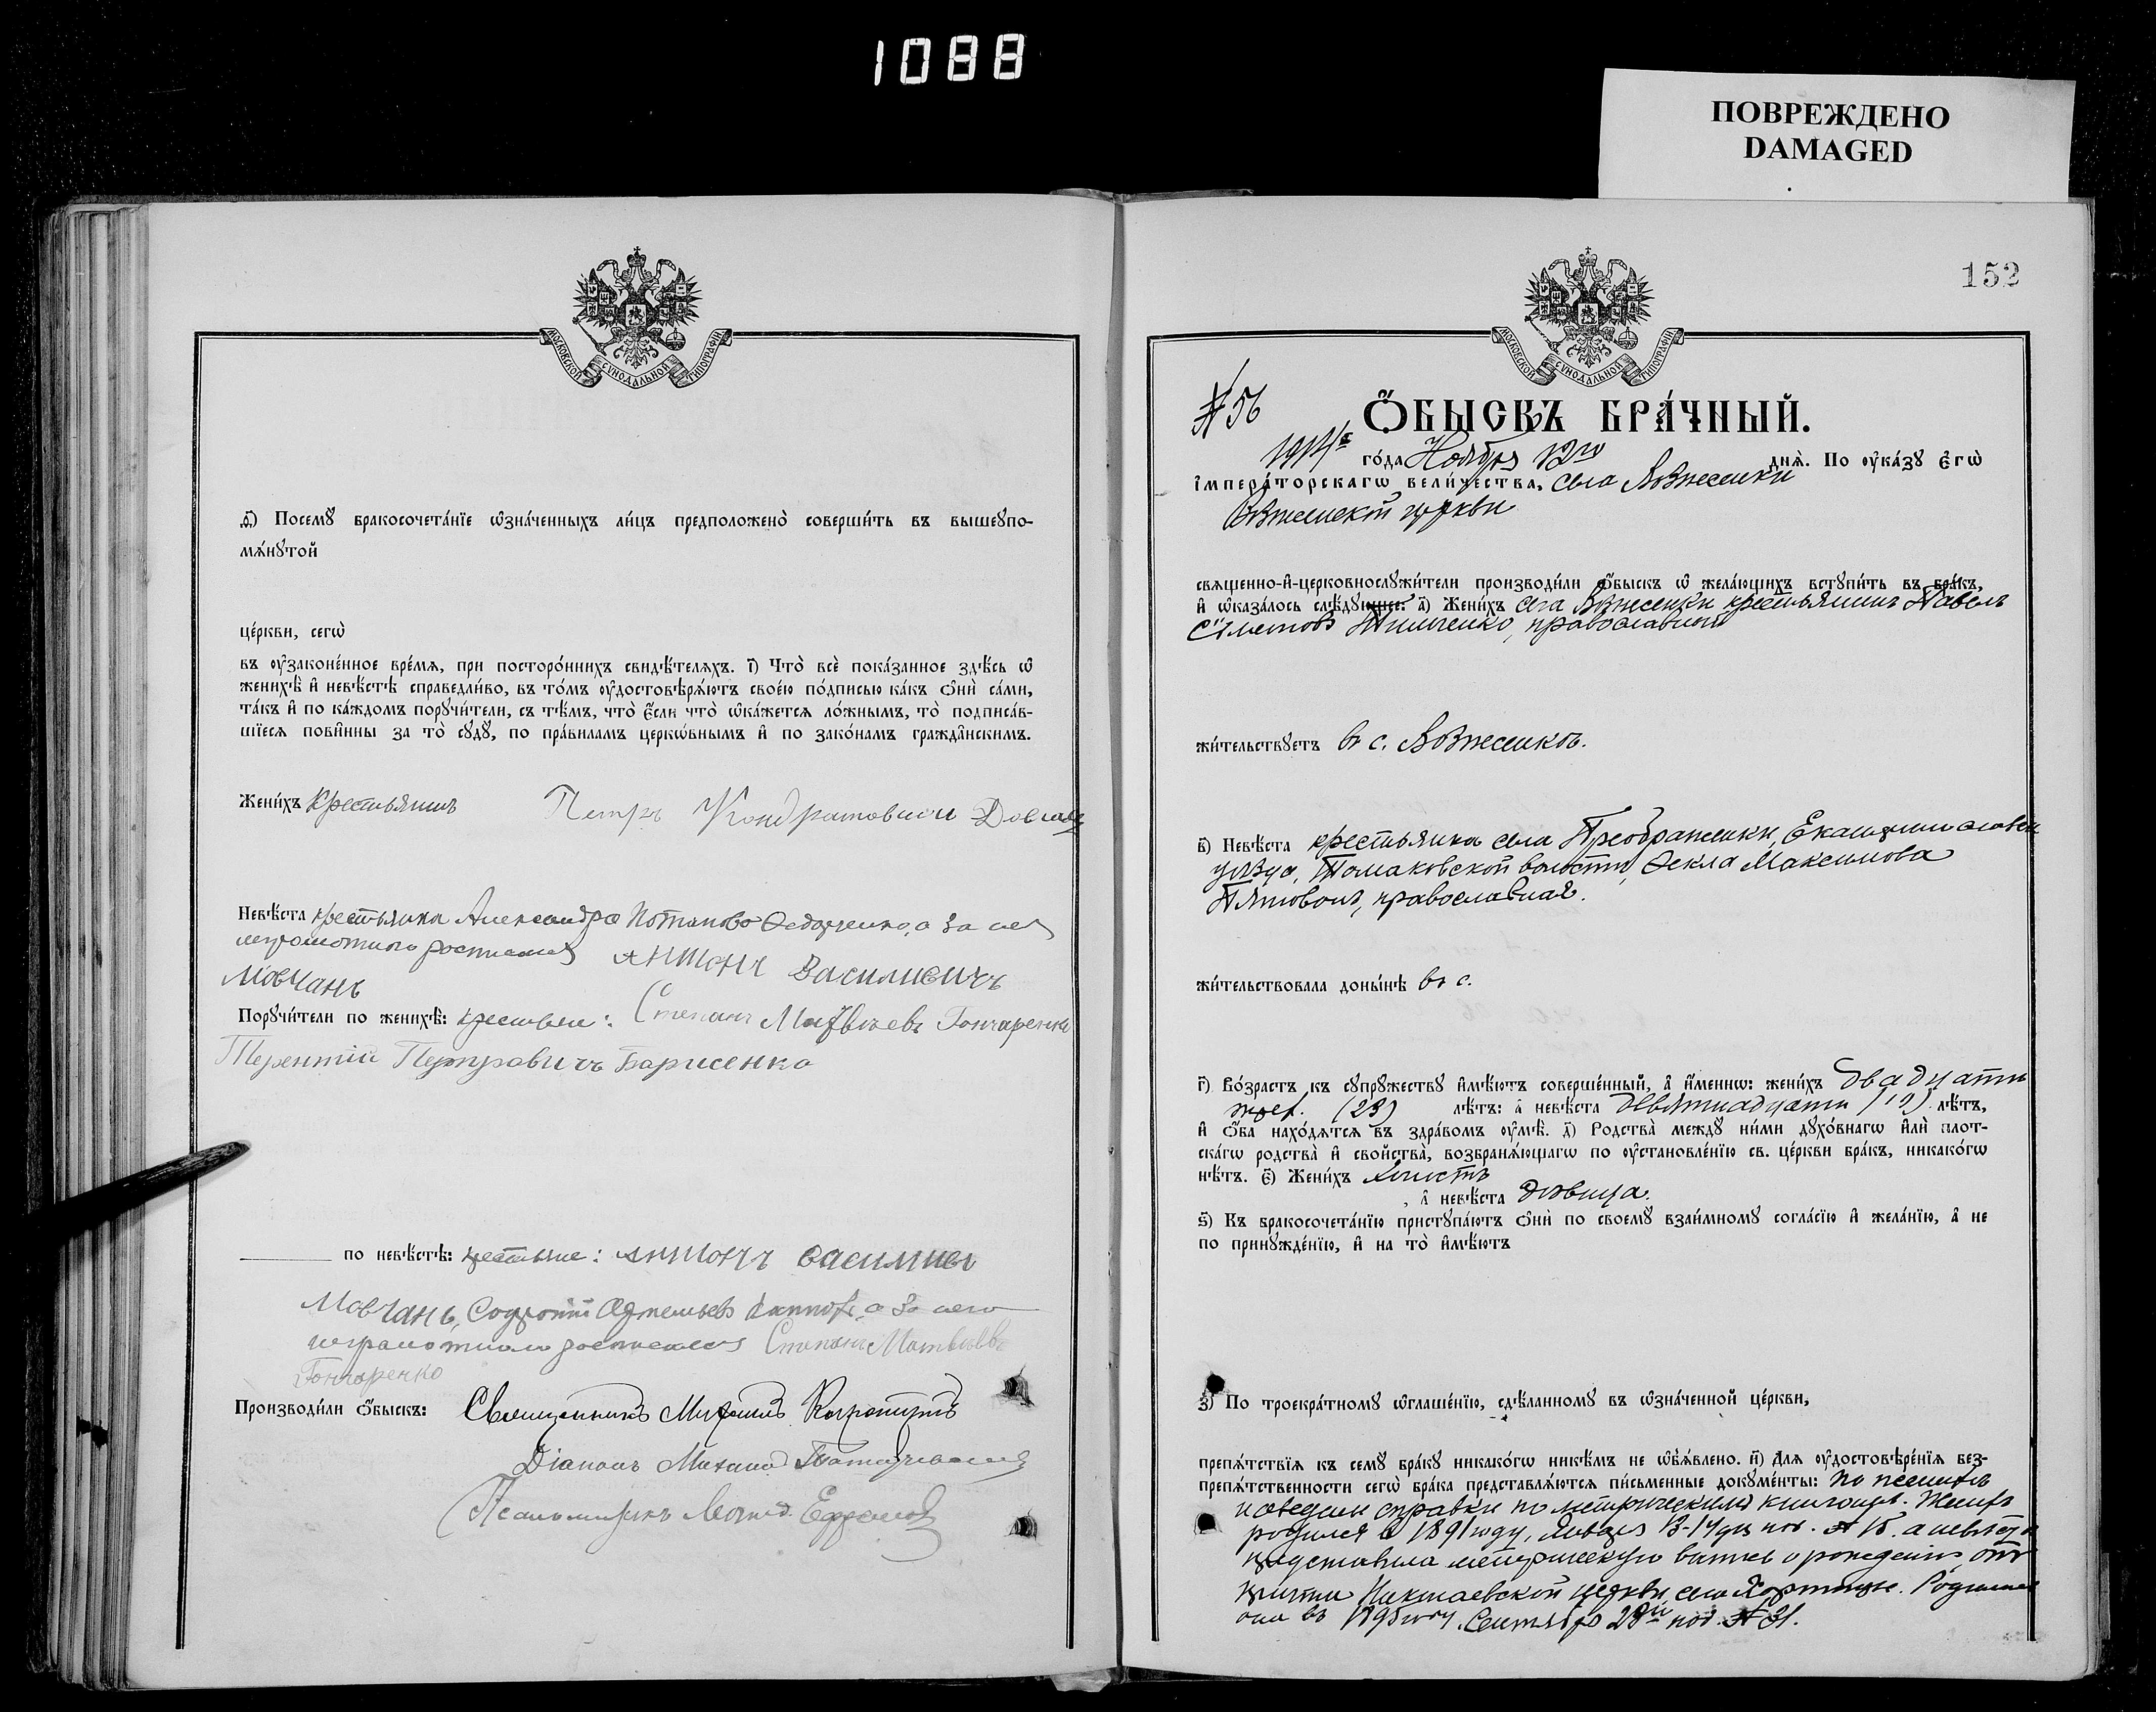 1088
ПОВРЕЖДЕНО
DAMAGED
МОСКОВСКОЙ СѴНОДАЛЬНОЙ ТИПОГРАФІИ
ѳ҃) Посемꙋ̀ бракосочета́нїе ѡ҆зна́ченныхъ ли́цъ предположено̀ соверши́ть въ вышеꙋпо-
мѧ́нꙋтой
це́ркви, сегѡ̀
въ ᲂу҆законе́нное вре́мѧ, при посторо́ннихъ свидѣ́телѧхъ. і҃) Что̀ всѐ пока́занное здѣ́сь ѡ҆
женихѣ̀ и҆ невѣ́стѣ справедли́во, въ то́мъ ᲂу҆достовѣрѧ́ютъ свое́ю по́дписью ка́къ ѻ҆нѝ са́ми,
та́къ и҆ по ка́ждомъ порꙋчи́тели, съ тѣ́мъ, что̀ є҆́сли что̀ ѡ҆ка́жетсѧ ло́жнымъ, то̀ подписа́в-
шїесѧ пови́нны за то̀ сꙋдꙋ̀, по пра́виламъ церкѡ́внымъ и҆ по зако́намъ гражда̑нскимъ.
Жени́хъ крестьянинъ Петръ Кондратовичъ
Невѣ́ста крестьянка Александра Потапова Федорченко, а за нея
неграмотную росписался Антонъ Василиевичъ
Мовчанъ
Порꙋчи́тели по женихѣ̀: крестьяне: Степанъ Матвѣевъ Гончаренко
Терентій Петровичъ Барисенко
по невѣ́стѣ: крестьяне: Антонъ Василиев
Мовчанъ, Софроній а за него
неграмотнаго росписался Степанъ Матвѣевъ
Гончаренко
Производи́ли ѻ҆́быскъ: Священникъ
Діаконъ Михаилъ
Псаломщикъ
152
МОСКОВСКОЙ СѴНОДАЛЬНОЙ ТИПОГРАФІИ
№ 56
Ѻ҆́БЫСКЪ БРА́ЧНЫЙ.
1914 го́да Ноября 12го днѧ̀. По ᲂу҆ка́зꙋ є҆гѡ̀
і҆мпера́торскагѡ вели́чества, села Вознесенки
Вознесенской церкви
свѧщенно-и҆-церковнослꙋжи́тели производи́ли ѻ҆́быскъ ѡ҆ жела́ющихъ встꙋпи́ть въ бра́къ,
и҆ ѡ҆каза́лось слѣ́дꙋющее: а҃) Жени́хъ села Вознесенки крестьянинъ Павелъ
православный
жи́тельствꙋетъ въ с. Вознесенкѣ.
в҃) Невѣ́ста крестьянка села Преображенки, Екатеринослав.
уѣзда, Томаковской волости, Ѳекла Максимова
православная.
жи́тельствовала доны́нѣ въ с.
г҃) Во́зрастъ къ сꙋпрꙋ́жествꙋ и҆мѣ́ютъ соверше́нный, а҆ и҆́менно: жени́хъ двадцати
трех. (23) лѣ́тъ: а҆ невѣ́ста девятнадцати (19) лѣ́тъ,
и҆ ѻ҆́ба нахо́дѧтсѧ въ здра́вомъ ᲂу҆мѣ̀. д҃) Родства̀ междꙋ̀ ни́ми дꙋхо́внагѡ и҆лѝ плот-
ска́гѡ родства̀ и҆ сво́йства, возбранѧ́ющагѡ по ᲂу҆становле́нїю св. це́ркви бра́къ, никако́гѡ
нѣ́тъ. є҃) Жени́хъ холостъ
, а҆ невѣ́ста дѣвица.
ѕ҃) Къ бракосочета́нїю пристꙋпа́ютъ ѻ҆нѝ по своемꙋ̀ взаи́мномꙋ согла́сїю и҆ жела́нїю, а҆ не
по принꙋжде́нїю, и҆ на то̀ и҆мѣ́ютъ
з҃) По троекра́тномꙋ ѡ҆глаше́нїю, сдѣ́ланномꙋ въ ѡ҆зна́ченной це́ркви,
препѧ́тствїѧ къ семꙋ̀ бра́кꙋ никако́гѡ никѣ́мъ не ѡ҆б̾ѧ́влено. и҃) Для ᲂу҆достовѣре́нїѧ без-
препѧ́тственности сегѡ̀ бра́ка представлѧ́ютсѧ пи́сьменные докꙋме́нты: по
справки по метрическимъ книгамъ. Женихъ
родился в 1891 году, Января 13-14 дня под. № 15. а невѣста
представила метрическую выпись о рожденіи отъ
причта Николаевской церкви, села Хортицы. Родилась
она въ 1895 году, Сентября 28го под. № 31.